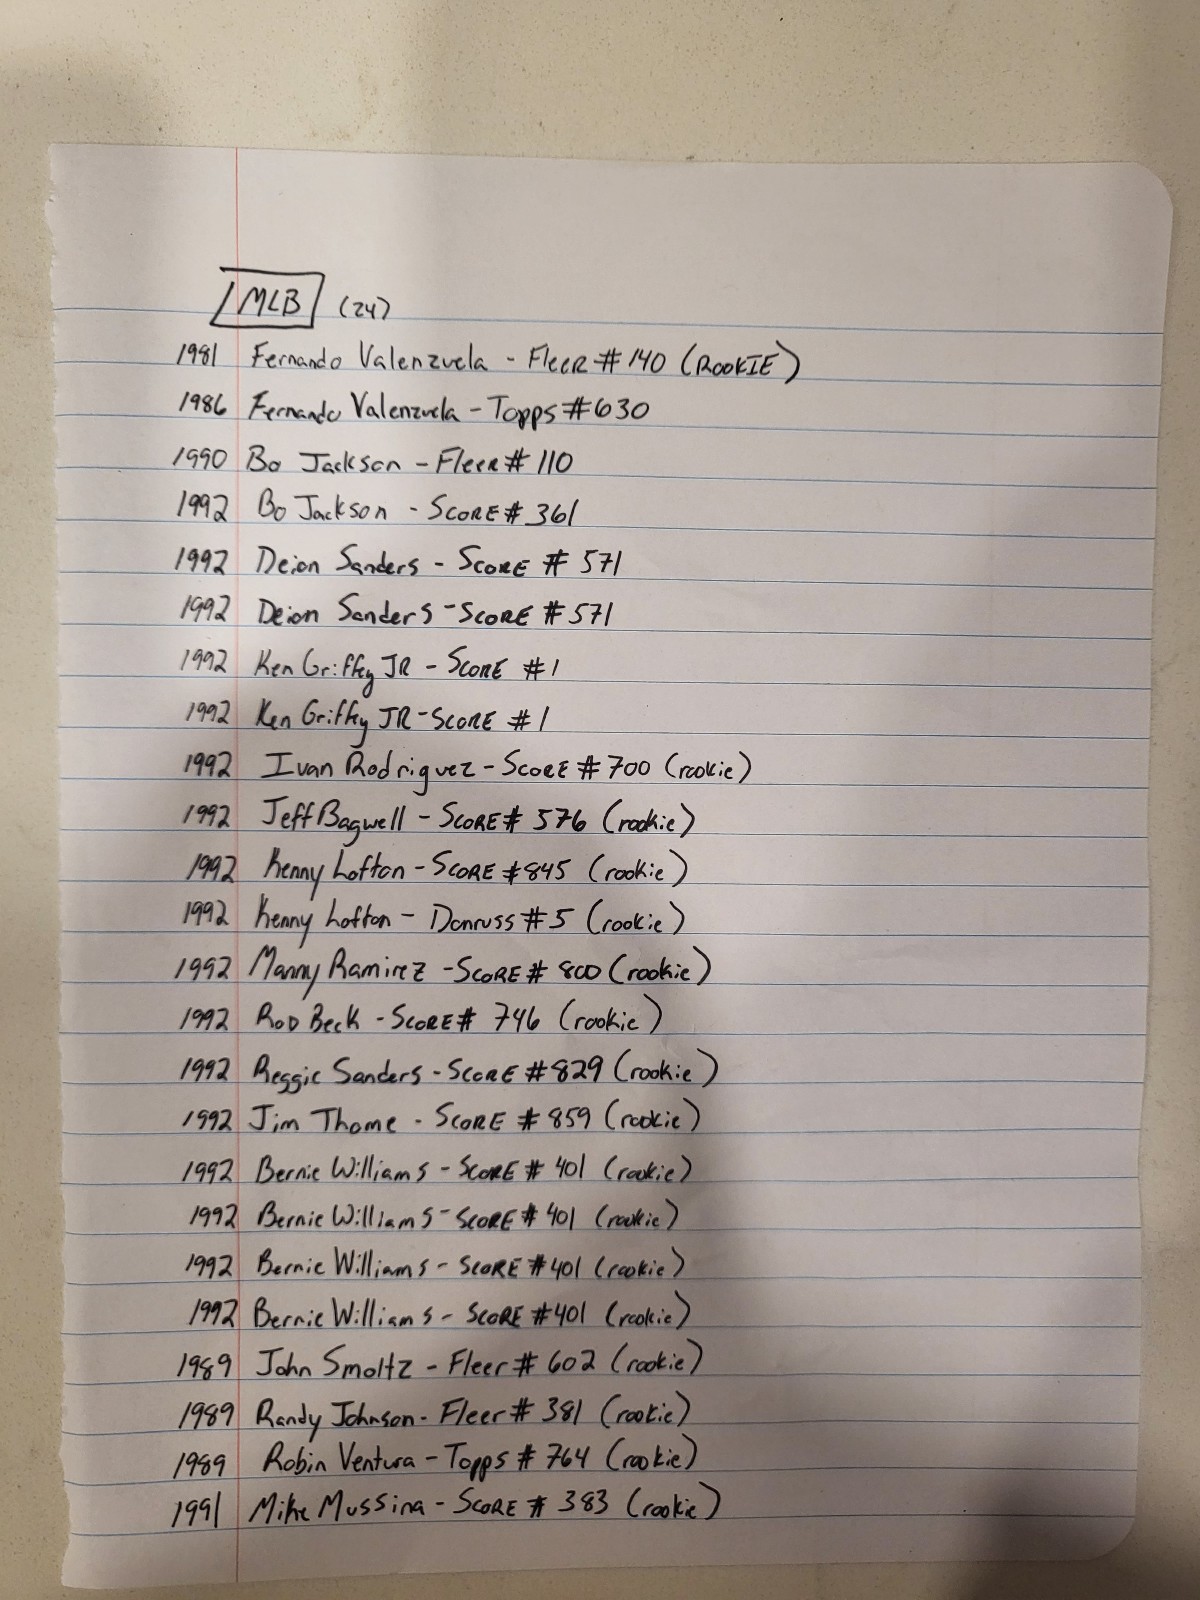 MLB (24)
1981 Fernando Valenzuela - FleeR # 140 (ROOKIE)
1986 Fernando Valenzuela - Topps #630
1990 Bo Jackson - FleeR # 110
1992 Bo Jackson - SCORE # 361
1992 Deion Sanders - SCORE # 571
1992 Deion Sanders - SCORE # 571
1992 Ken Griffey JR - SCORE #1
1992 Ken Griffey JR - SCORE #1
1992 Ivan Rodriguez - SCORE # 700 (rookie)
1992 Jeff Bagwell - SCORE # 576 (rookie)
1992 Kenny Lofton - SCORE #845 (rookie)
1992 Kenny Lofton - Donruss #5 (rookie)
1992 Manny Ramirez - SCORE # 800 (rookie)
1992 ROD Beck - SCORE # 746 (rookie)
1992 Reggie Sanders - SCORE #829 (rookie)
1992 Jim Thome - SCORE # 859 (rookie)
1992 Bernie Williams - SCORE # 401 (rookie)
1992 Bernie Williams - SCORE # 401 (rookie)
1992 Bernie Williams - SCORE #401 (rookie)
1992 Bernie Williams - SCORE #401 (rookie)
1989 John Smoltz - Fleer # 602 (rookie)
1989 Randy Johnson - Fleer # 381 (rookie)
1989 Robin Ventura - Topps # 764 (rookie)
1991 Mike Mussina - SCORE # 383 (rookie)